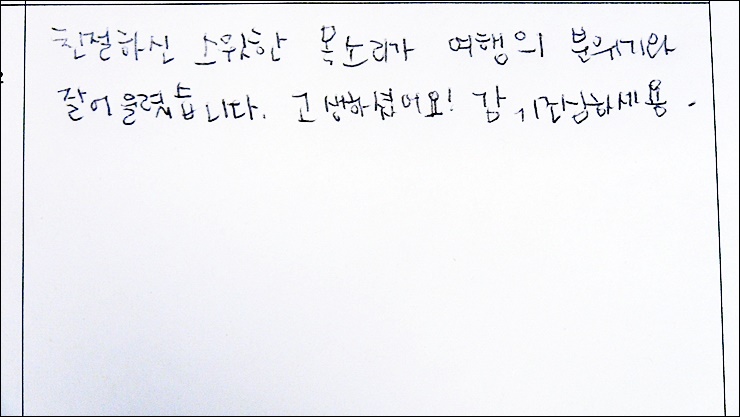 친절하신 소탈한 목소리가 여행의 분위기와
잘어울렸습니다. 고생하셨어요! 감기조심하세용.